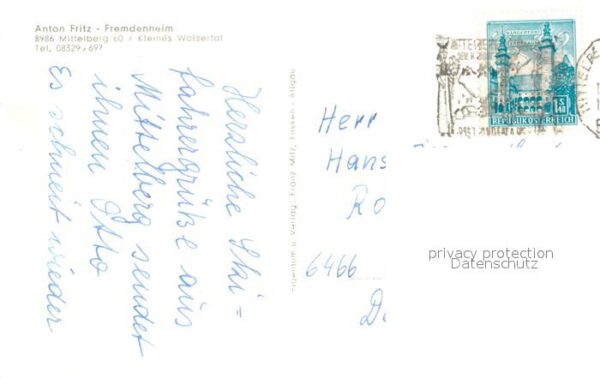 Anton Fritz - Fremdenheim
8986 Mittelberg 60 / Kleines Walsertal
Tel. 08329/697
Herzliche Ski=
fahrergrüße aus
Mittelberg sendet
ihnen Otto
Es schneit wieder
Eigentum u. Verlag: Franz Milz, Füssen - Allgäu
Herr
Hans
6466
REPUBLIK ÖSTERREICH
privacy protection
Datenschutz